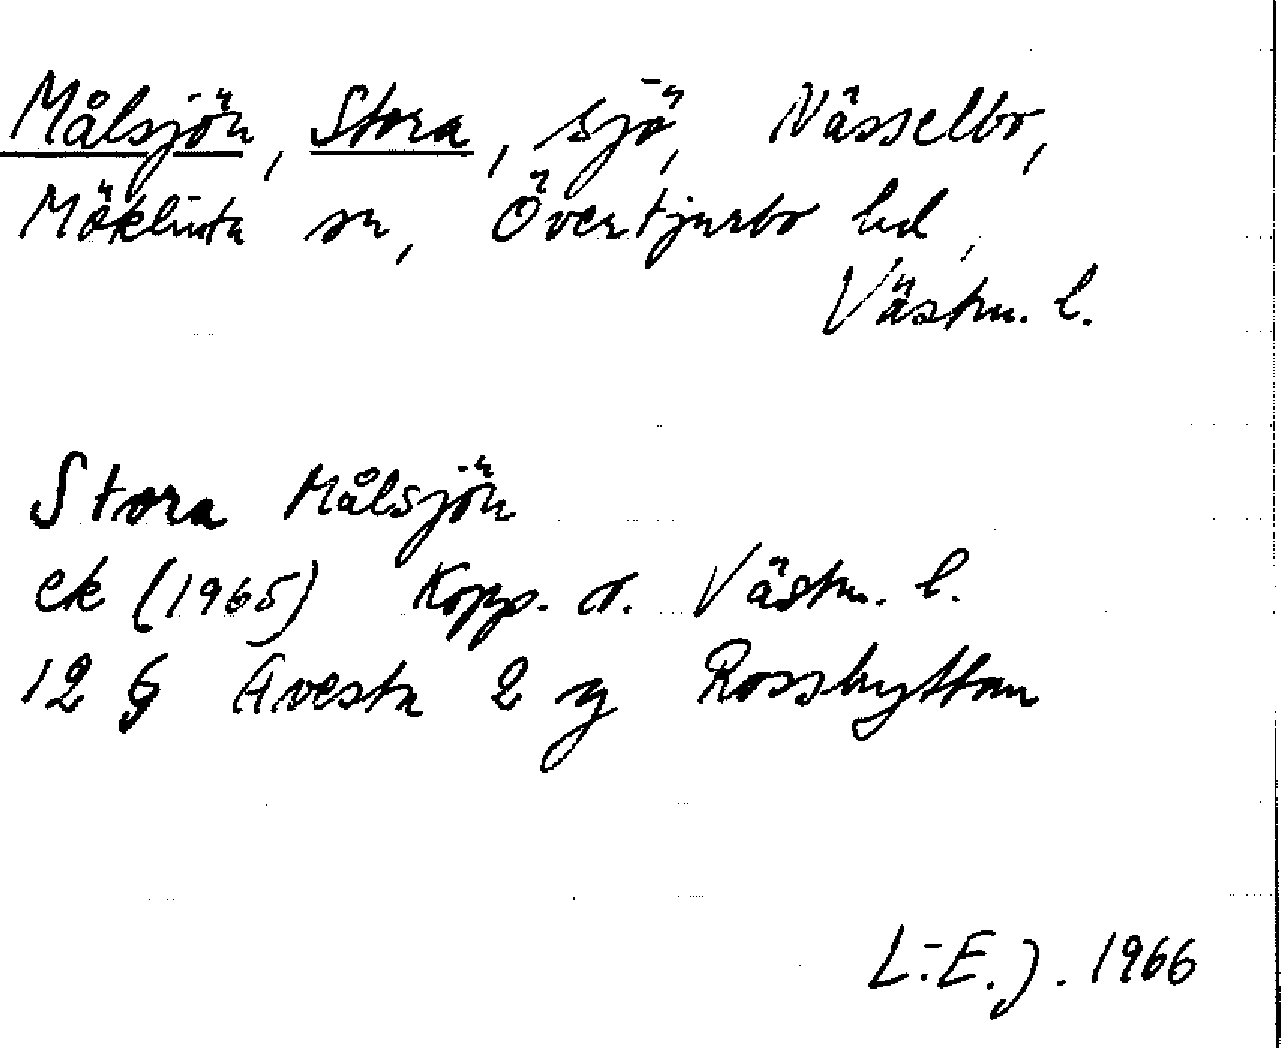 Målsjön, Stora, sjö, Nässelbo,
Möklinta sn, Övertjurbo hd,
Västm. l.
Stora Målsjön
ek (1965) Kopp. o. Västm. l.
12 G Avesta 2 g Rosshyttan
L-E. J. 1966